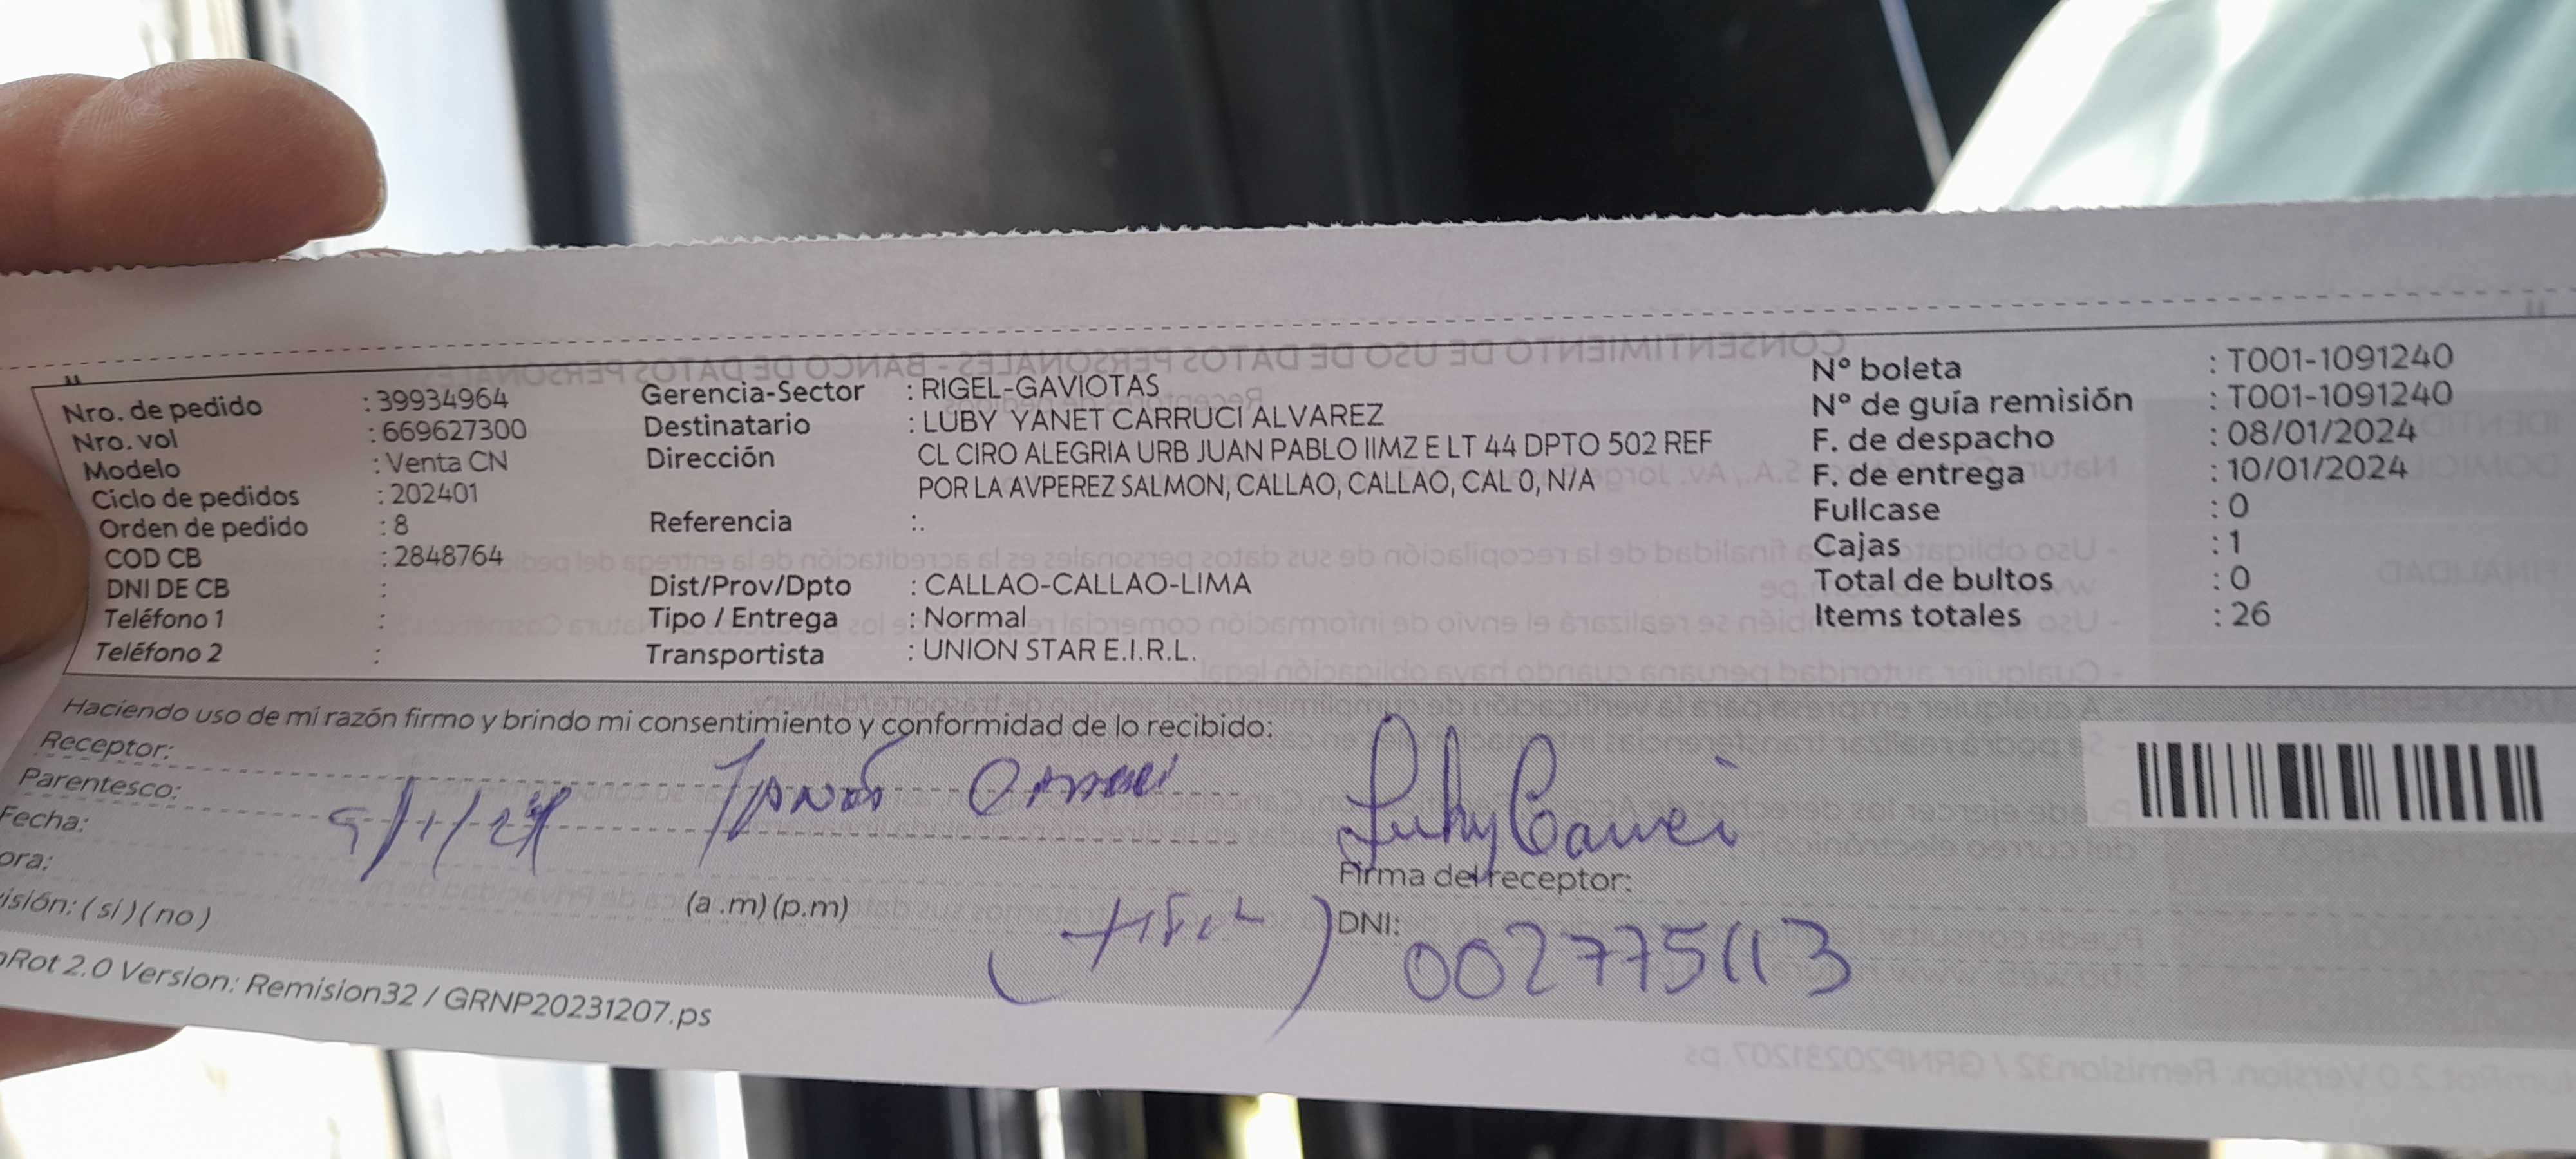 Nro. de pedido : 39934964
Nro. vol : 669627300
Modelo : Venta CN
Ciclo de pedidos : 202401
Orden de pedido : 8
COD CB : 2848764
DNI DE CB :
Teléfono 1 :
Teléfono 2 :
Gerencia-Sector : RIGEL-GAVIOTAS
Destinatario : LUBY YANET CARRUCI ALVAREZ
Dirección CL CIRO ALEGRIA URB JUAN PABLO IIMZ E LT 44 DPTO 502 REF
POR LA AVPEREZ SALMON, CALLAO, CALLAO, CAL 0, N/A
Referencia :.
Dist/Prov/Dpto : CALLAO-CALLAO-LIMA
Tipo / Entrega : Normal
Transportista : UNION STAR E.I.R.L.
Nº boleta : T001-1091240
Nº de guía remisión : T001-1091240
F. de despacho : 08/01/2024
F. de entrega : 10/01/2024
Fullcase : 0
Cajas : 1
Total de bultos : 0
Items totales : 26
Haciendo uso de mi razón firmo y brindo mi consentimiento y conformidad de lo recibido:
Receptor:
Parentesco:
Fecha: 9/1/24
ora:
(a .m) (p.m)
isión: ( si ) ( no )
Firma del receptor:
DNI: 002775113
Rot 2.0 Version: Remision32 / GRNP20231207.ps